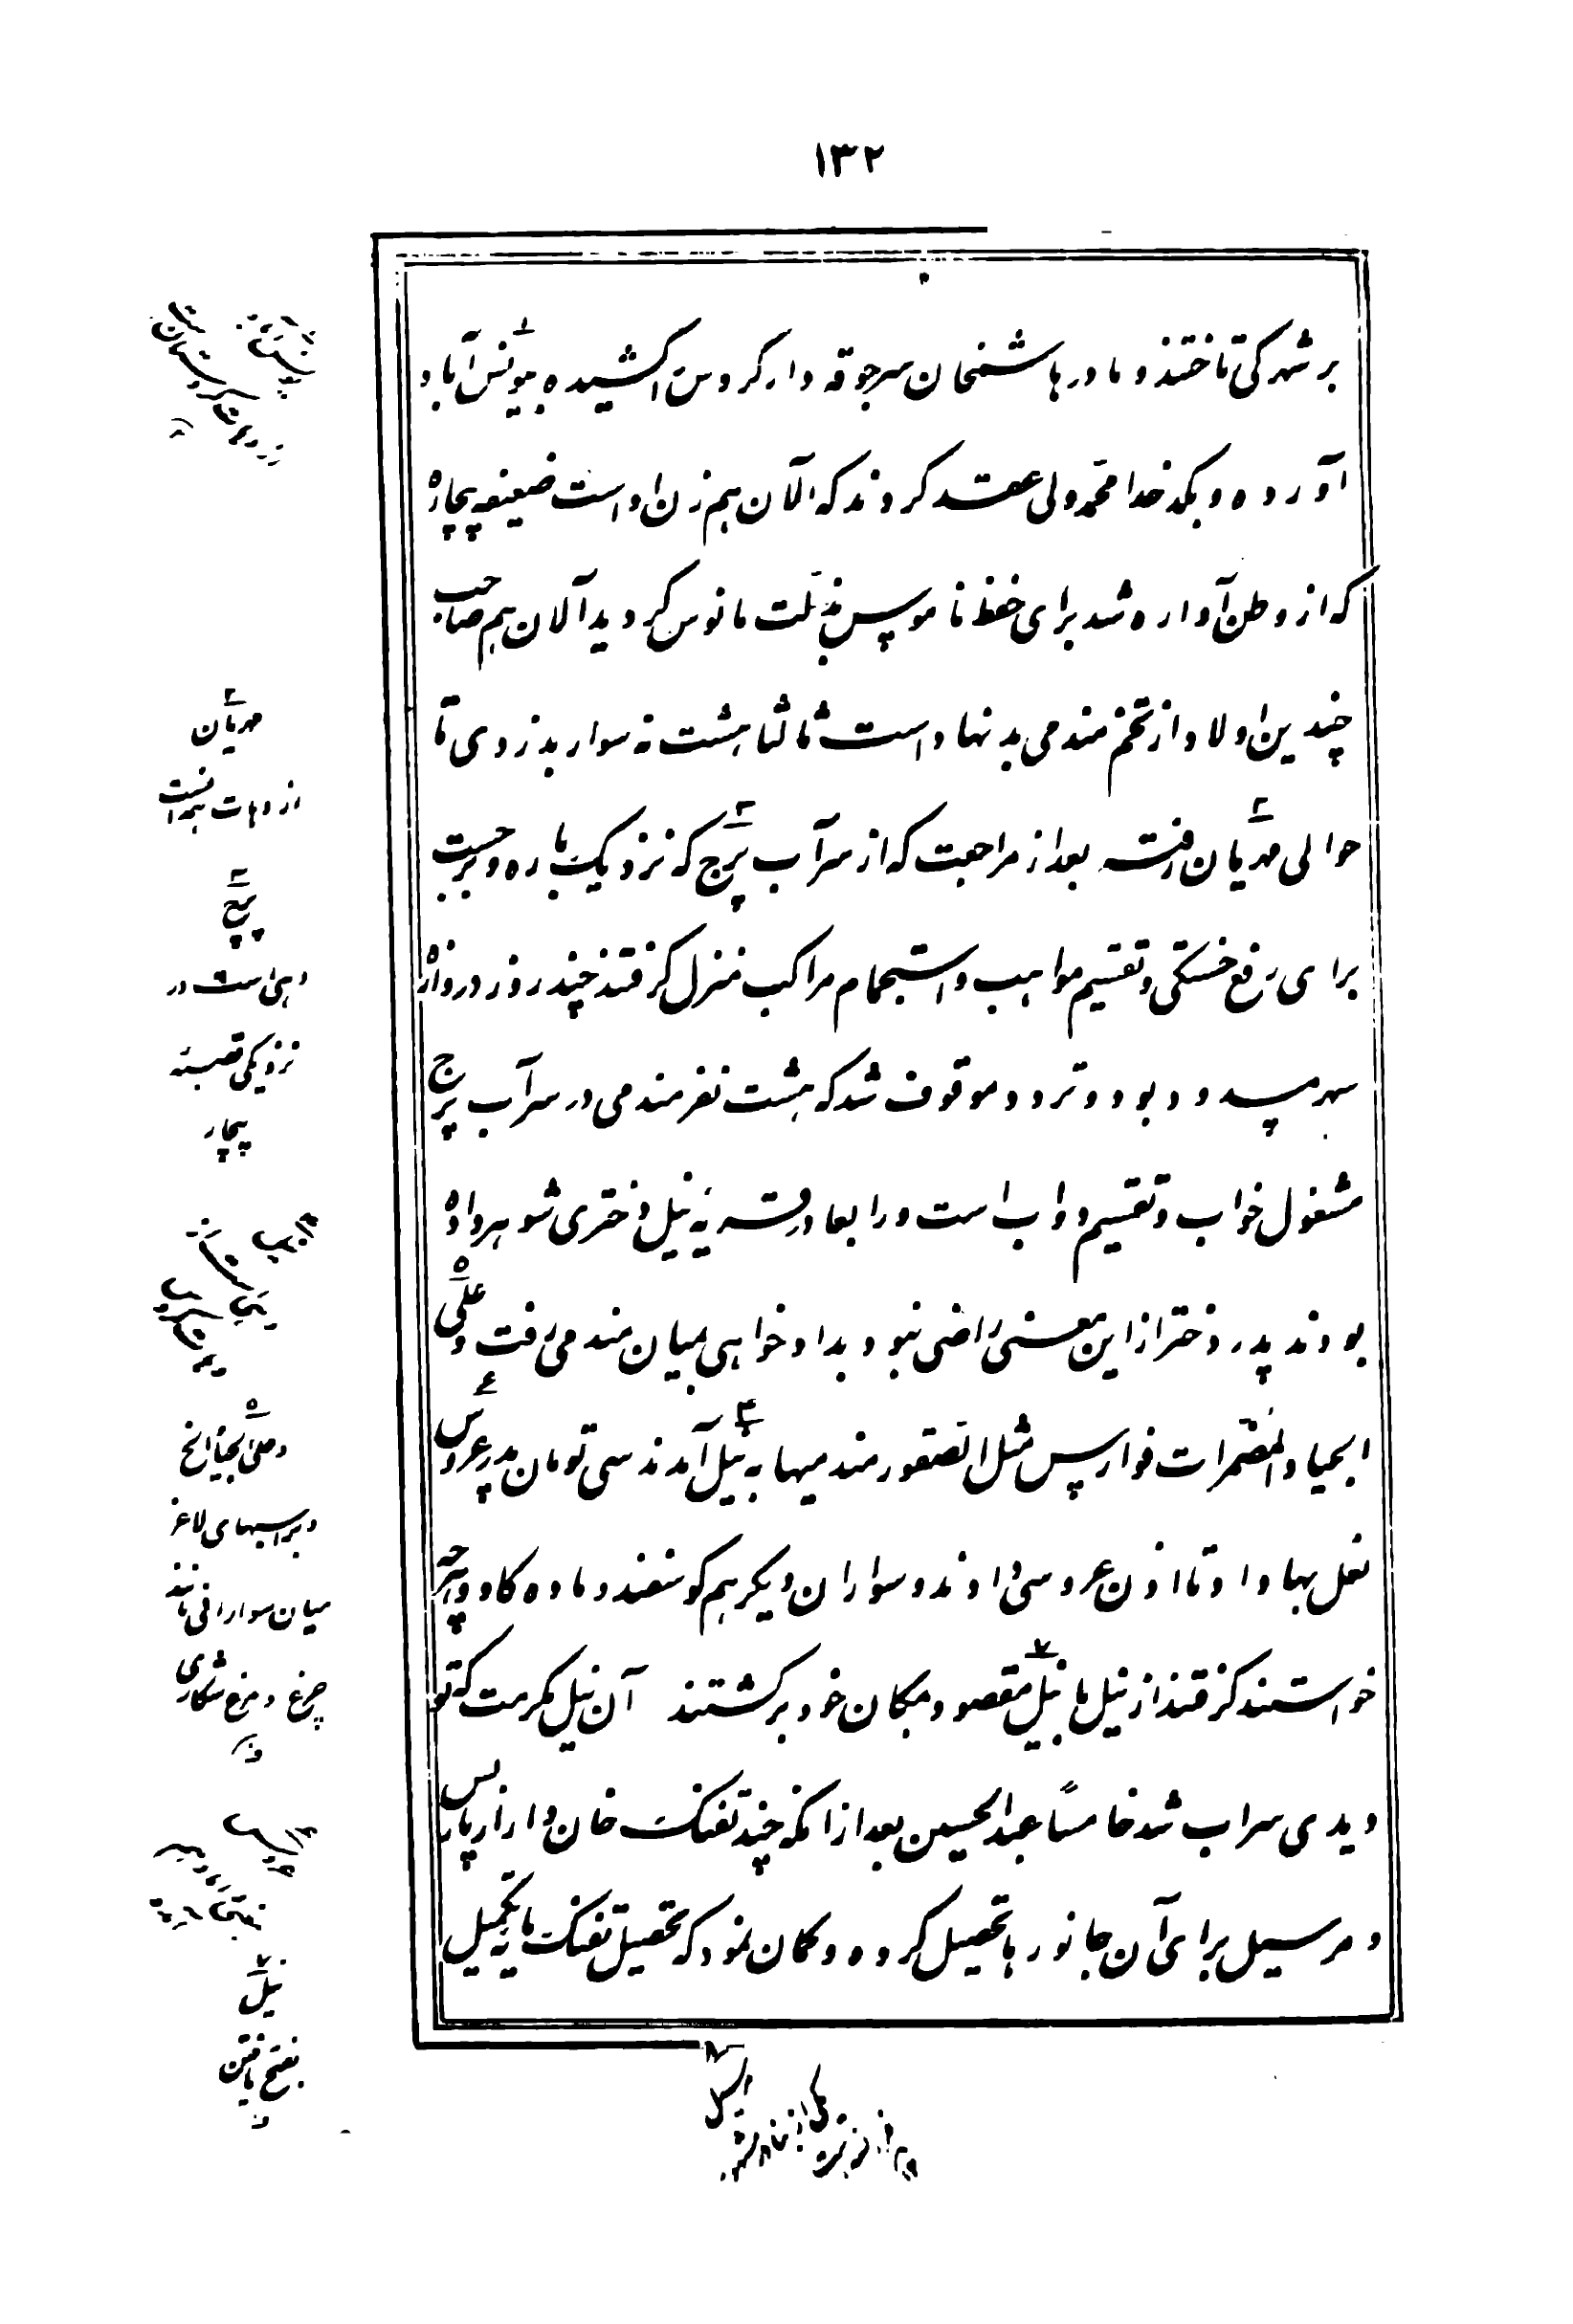 ۱۳۲
بر شهرکی تاختند و مادر هاشمخان سرجوقه دار کروس را کشیده بیونس آباد
آورده و بکدخدا محمد ولی عقد کردند که الآن هم زن او است ضعیفه بیچاره
که از وطن آواره شد برای حفظ ناموس بذلت مانوس کردید آلان هم صاحب
چندین اولاد از تخم مندمی بدنهاد است ثالثا هشت نه سوار بدزدی تا
حوالی مهربان رفته بعد از مراجعت که از سرآب پرچ که نزدیک
برای رفع خستکی و تقسیم مواهب و استجمام مراکب منزل کرفتند چند روز دروازه
شهر مسدود بود و تردد موقوف شد که هشت نفر مندمی در سرآب پرچ
مشغول خواب و تقسیم دواب است و رابعا در قریه نیل دختری شوهر داده
بودند پدر دختر از این معنی راضی نبود بدادخواهی میان مندمی رفت و علی
الجیاد المضمرات فوارس مثل الصقور مندمیها به نیل آمدند سی تومان پدر عروس
نعل بها داد تا اذن عروسی دادند و سواران دیکر هم کوسفند و ماده کاو و هرچه
خواستند کرفتند از نیل با نیل مقصود بمکان خود برکشتند آن نیل مکرمت که تو
دیدی سراب شد خامسا عبدالحسین بعد از آنکه چند تفنک خان دار از پارس
و مرسیل برای آن جانورها تحصیل کرده و کمان نمود که تحصیل تفنک مایه تکمیل
مهربان
از دهات همدانست
پرچ
دهی است در
نزدیکی قصبه
بیجار
و علی الجیاد الخ
و بر اسبهای لاغر
میان سوارانی مانند
چرغ و مرغ شکاری
نیل
بفتح یافتن